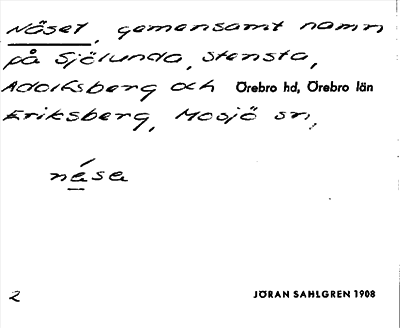 Näset, gemensamt namn
på Sjölunda, Stensta,
Adolfsberg och Örebro hd, Örebro län
Eriksberg, Mosjö sn,
nása
2 JÖRAN SAHLGREN 1908